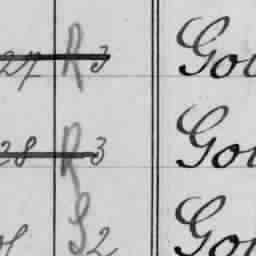 27 R 3 Gou
28 R 3 Gou
S 2 Gou